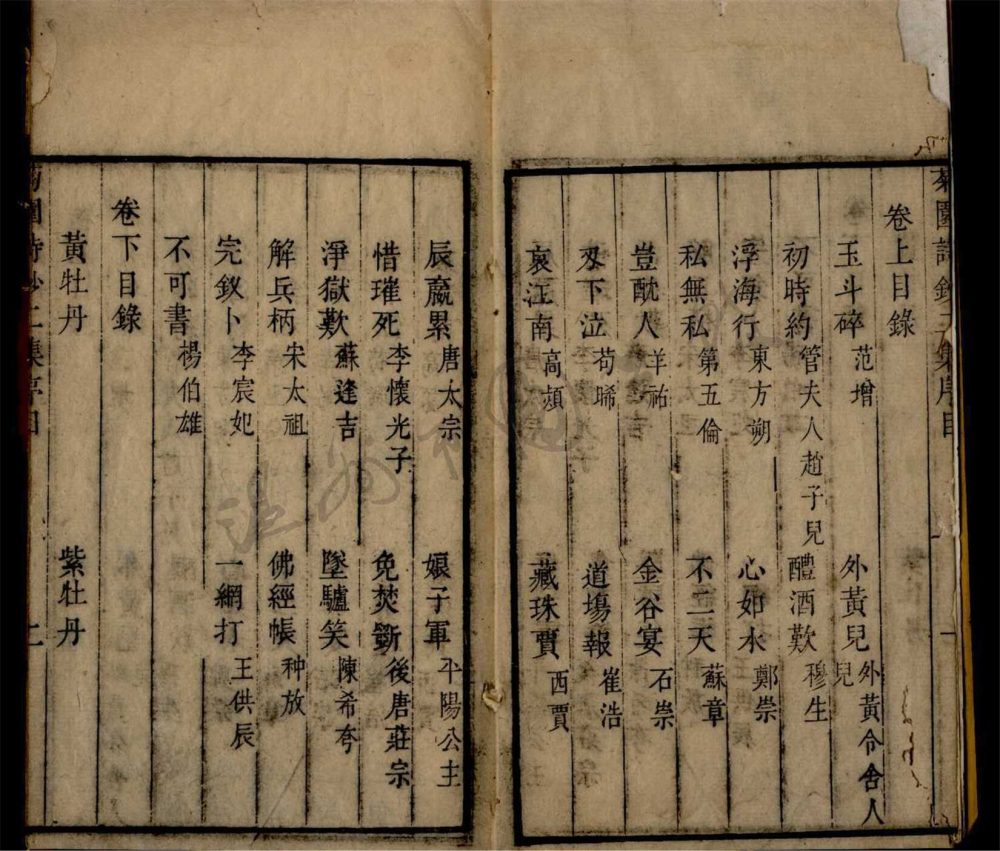 卷上目錄
玉斗碎 范增 外黃兒 外黃令舍人兒
初時約 管夫人趙子兒 醴酒歎 穆生
浮海行 東方朔 心如水 鄭崇
私無私 第五倫 不二天 蘇章
豈酖人 羊祜 金谷宴 石崇
刄下泣 荀晞 道塲報 崔浩
哀江南 高熲 藏珠賈 西賈
辰嬴累 唐太宗 娘子軍 平陽公主
惜璀死 李懷光子 免焚斲 後唐莊宗
淨獄歎 蘇逢吉 墜驢笑 陳希夸
解兵柄 宋太祖 佛經帳 种放
完釵卜 李宸妃 一網打 王供辰
不可書 楊伯雄
卷下目錄
黃牡丹 紫牡丹
二